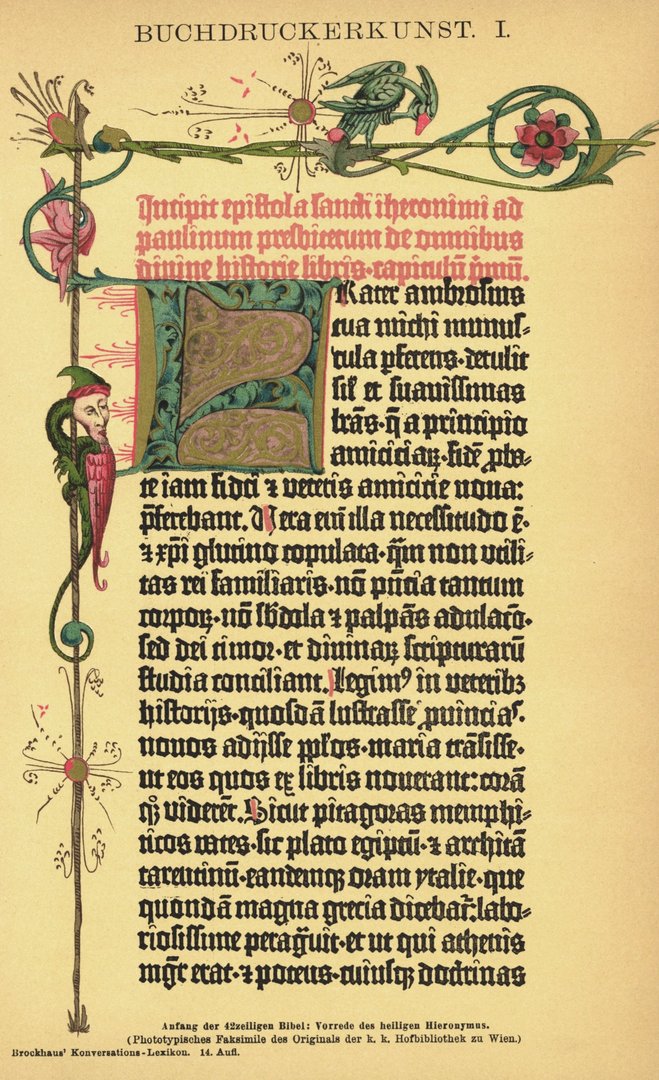 BUCHDRUCKERKUNST. I.
Incipit epistola sancti iheronimi ad
paulinum presbiterum de omnibus
divine historie libris·capitulū p̄mū.
Frater ambrosius
tua michi munus-
cula pferens·detulit
sil' et suavissimas
lr̄as·q̄ a principio
amiciciaꝝ·fidē pba-
te iam fidei ⁊ veteris amicicie nova:
p̄ferebant. Vera eni illa necessitudo ē·
⁊ xp̄i glutino copulata·qm̄ non utili-
tas rei familiaris·nō pn̄tia tantum
corpoꝝ·nō sb̄dola ⁊ palpās adulacō·
sed dei timor·et divinaꝝ scripturarū
studia conciliant. Legimꝰ in veteribꝫ
historijs·quosdā lustrasse ꝓuinciaˢ·
novos adijsse pp̄los·maria trāsisse·
ut eos quos ex libris noverant: corā
qꝫ viderēt. Sicut pitagoras memphi-
ticos vates·sic plato egiptū·⁊ architā
tarentinū·eandemqꝫ oram ytalie·que
quondā magna grecia dicebat̄: labo-
riosissime peragᷓvit·et ut qui athenis
mgr̄ erat·⁊ potens·cuiusqꝫ doctrinas
Anfang der 42zeiligen Bibel: Vorrede des heiligen Hieronymus.
(Phototypisches Faksimile des Originals der k. k. Hofbibliothek zu Wien.)
Brockhaus' Konversations-Lexikon. 14. Aufl.